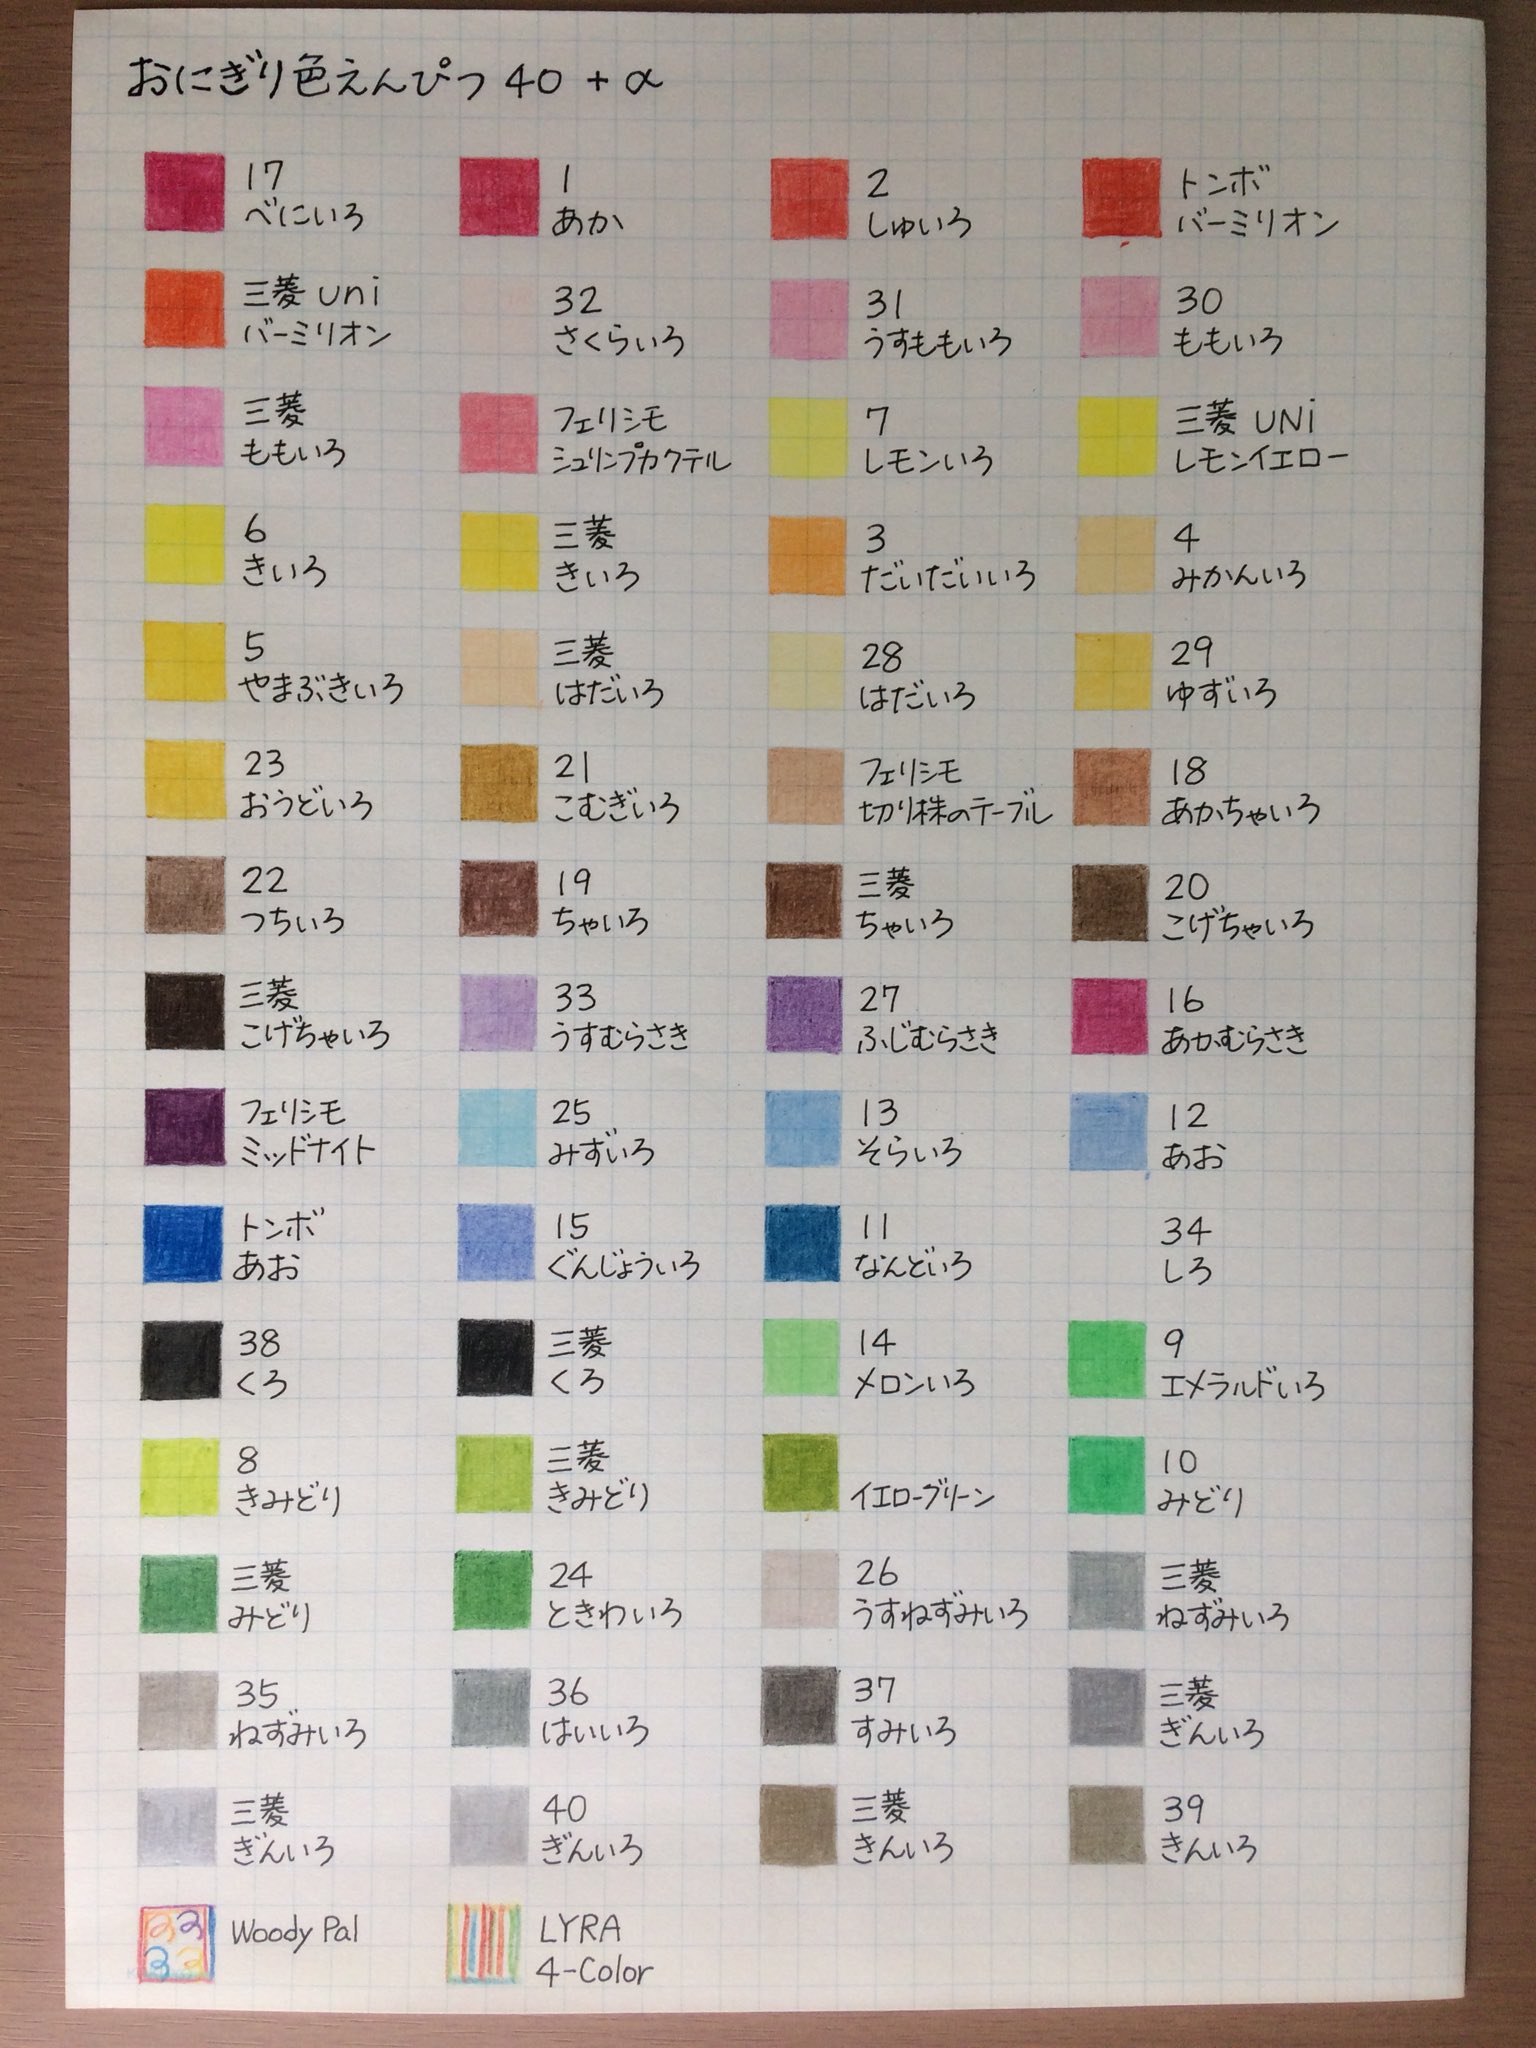 おにぎり色えんぴつ 40 + α
17
べにいろ
1
あか
2
しゅいろ
トンボ
バーミリオン
三菱 uni
バーミリオン
32
さくらいろ
31
うすももいろ
30
ももいろ
三菱
ももいろ
フェリシモ
シュリンプカクテル
7
レモンいろ
三菱 UNi
レモンイエロー
6
きいろ
三菱
きいろ
3
だいだいいろ
4
みかんいろ
5
やまぶきいろ
三菱
はだいろ
28
はだいろ
29
ゆずいろ
23
おうどいろ
21
こむぎいろ
フェリシモ
切り株のテーブル
18
あかちゃいろ
22
つちいろ
19
ちゃいろ
三菱
ちゃいろ
20
こげちゃいろ
三菱
こげちゃいろ
33
うすむらさき
27
ふじむらさき
16
あかむらさき
フェリシモ
ミッドナイト
25
みずいろ
13
そらいろ
12
あお
トンボ
あお
15
ぐんじょういろ
11
なんどいろ
34
しろ
38
くろ
三菱
くろ
14
メロンいろ
9
エメラルドいろ
8
きみどり
三菱
きみどり
イエローグリーン
10
みどり
三菱
みどり
24
ときわいろ
26
うすねずみいろ
三菱
ねずみいろ
35
ねずみいろ
36
はいいろ
37
すみいろ
三菱
ぎんいろ
三菱
ぎんいろ
40
ぎんいろ
三菱
きんいろ
39
きんいろ
Woody Pal
LYRA
4-Color